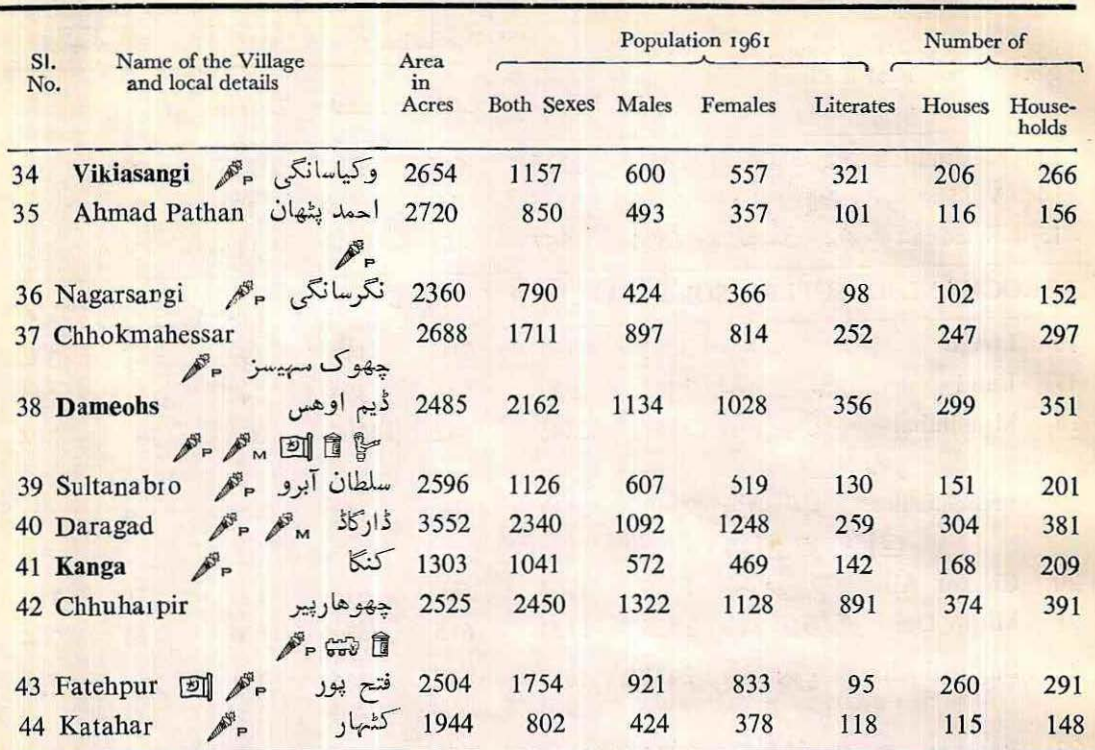 Sl. No. Name of the Village and local details Area in Acres Population 1961 Number of
Both Sexes Males Females Literates Houses House-holds
34 Vikiasangi P وکیاسانگی 2654 1157 600 557 321 206 266
35 Ahmad Pathan احمد پٹھان 2720 850 493 357 101 116 156
P
36 Nagarsangi P نگرسانگی 2360 790 424 366 98 102 152
37 Chhokmahessar 2688 1711 897 814 252 247 297
چھوک مہیسر P
38 Dameohs ڈیم اوھس 2485 2162 1134 1028 356 299 351
P M
39 Sultanabro P سلطان آبرو 2596 1126 607 519 130 151 201
40 Daragad P M ڈارگاڈ 3552 2340 1092 1248 259 304 381
41 Kanga P کنگا 1303 1041 572 469 142 168 209
42 Chhuharpir چھوھارپیر 2525 2450 1322 1128 891 374 391
P
43 Fatehpur P فتح پور 2504 1754 921 833 95 260 291
44 Katahar P کٹہار 1944 802 424 378 118 115 148